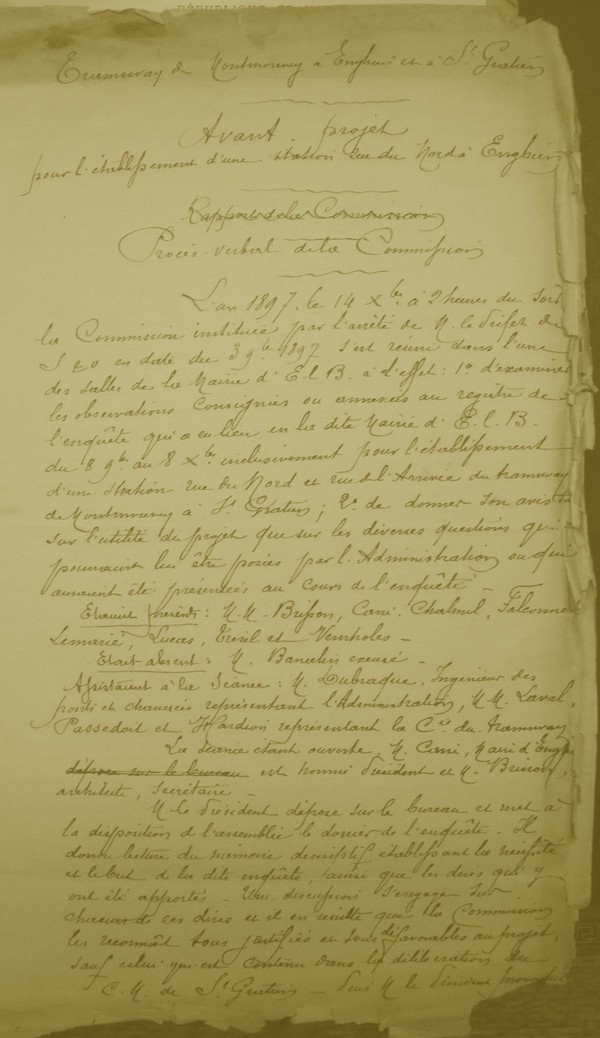 RÉPUBLIQUE
Tramway de Montmorency à Enghien et à St Gratien
Avant-projet
pour l'établissement d'une station rue du Nord à Enghien
Rapport de la Commission
Procès-verbal de la Commission
L'an 1897, le 14 Xbre à 2 heures du soir
la Commission instituée par l'arrêté de M. le Préfet de
S & O en date du 3 9bre 1897 s'est réunie dans l'une
des salles de la Mairie d'E.l.B. à l'effet : 1o d'examiner
les observations consignées ou annexées au registre de
l'enquête qui a eu lieu en la dite Mairie d'E.l.B.
du 8 9bre au 8 Xbre inclusivement pour l'établissement
d'une station rue du Nord et rue de l'Arrivée du tramway
de Montmorency à St Gratien ; 2o de donner son avis tant
sur l'utilité du projet que sur les diverses questions qui
pourraient lui être posées par l'Administration ou qui
auraient été présentées au cours de l'enquête —
Etaient présents : M.M. Brisson, Carré, Chalmil, Falconnet
Lemarié, Lucas, et
Etait absent : M. Bancelin excusé —
Assistaient à la Séance : M. Dubraque, Ingénieur des
ponts et chaussées représentant l'Administration, MM. Laval,
Passedoit et Hardion représentant la Cie du tramway
La séance étant ouverte, M. Carré, Maire d'Enghien
dépose sur le bureau est nommé Président et M. Brisson,
architecte, secrétaire —
M. le Président dépose sur le bureau et met à
la disposition de l'assemblée le dossier de l'enquête. Il
donne lecture du mémoire descriptif établissant la nécessité
et le but de la dite enquête, ainsi que les dires qui y
ont été apportés — Une discussion s'engage sur
chacun de ces dires et il en résulte que la Commission
les reconnaît tous justifiés et tous défavorables au projet,
sauf celui qui est contenu dans la délibération du
C. M. de St Gratien — M. le Président